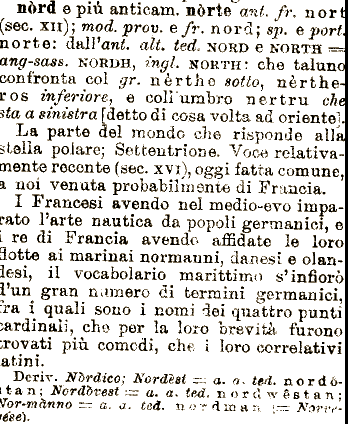 nòrd e più anticam. nòrte ant. fr. nort
(sec. XII); mod. prov. e fr. nord; sp. e port.
norte: dall'ant. alt. ted. NORD e NORTH =
ang-sass. NORDH, ingl. NORTH: che taluno
confronta col gr. nèrthe sotto, nèrthe-
ros inferiore, e coll'umbro nertru che
sta a sinistra [detto di cosa volta ad oriente].
La parte del mondo che risponde alla
stella polare; Settentrione. Voce relativa-
mente recente (sec. XVI), oggi fatta comune,
a noi venuta probabilmente di Francia.
I Francesi avendo nel medio-evo impa-
rato l'arte nautica da popoli germanici, e
i re di Francia avendo affidate le loro
flotte ai marinai normanni, danesi e olan-
desi, il vocabolario marittimo s'infiorò
d'un gran numero di termini germanici,
fra i quali sono i nomi dei quattro punti
cardinali, che per la loro brevità furono
trovati più comodi, che i loro correlativi
latini.
Deriv. Nòrdico; Nordèst = a. a. ted. nordô-
stan; Nordòvest = a. a. ted. nordwëstan;
Nor-mànno = a. a. ted. nordman (= Norve-
gése).